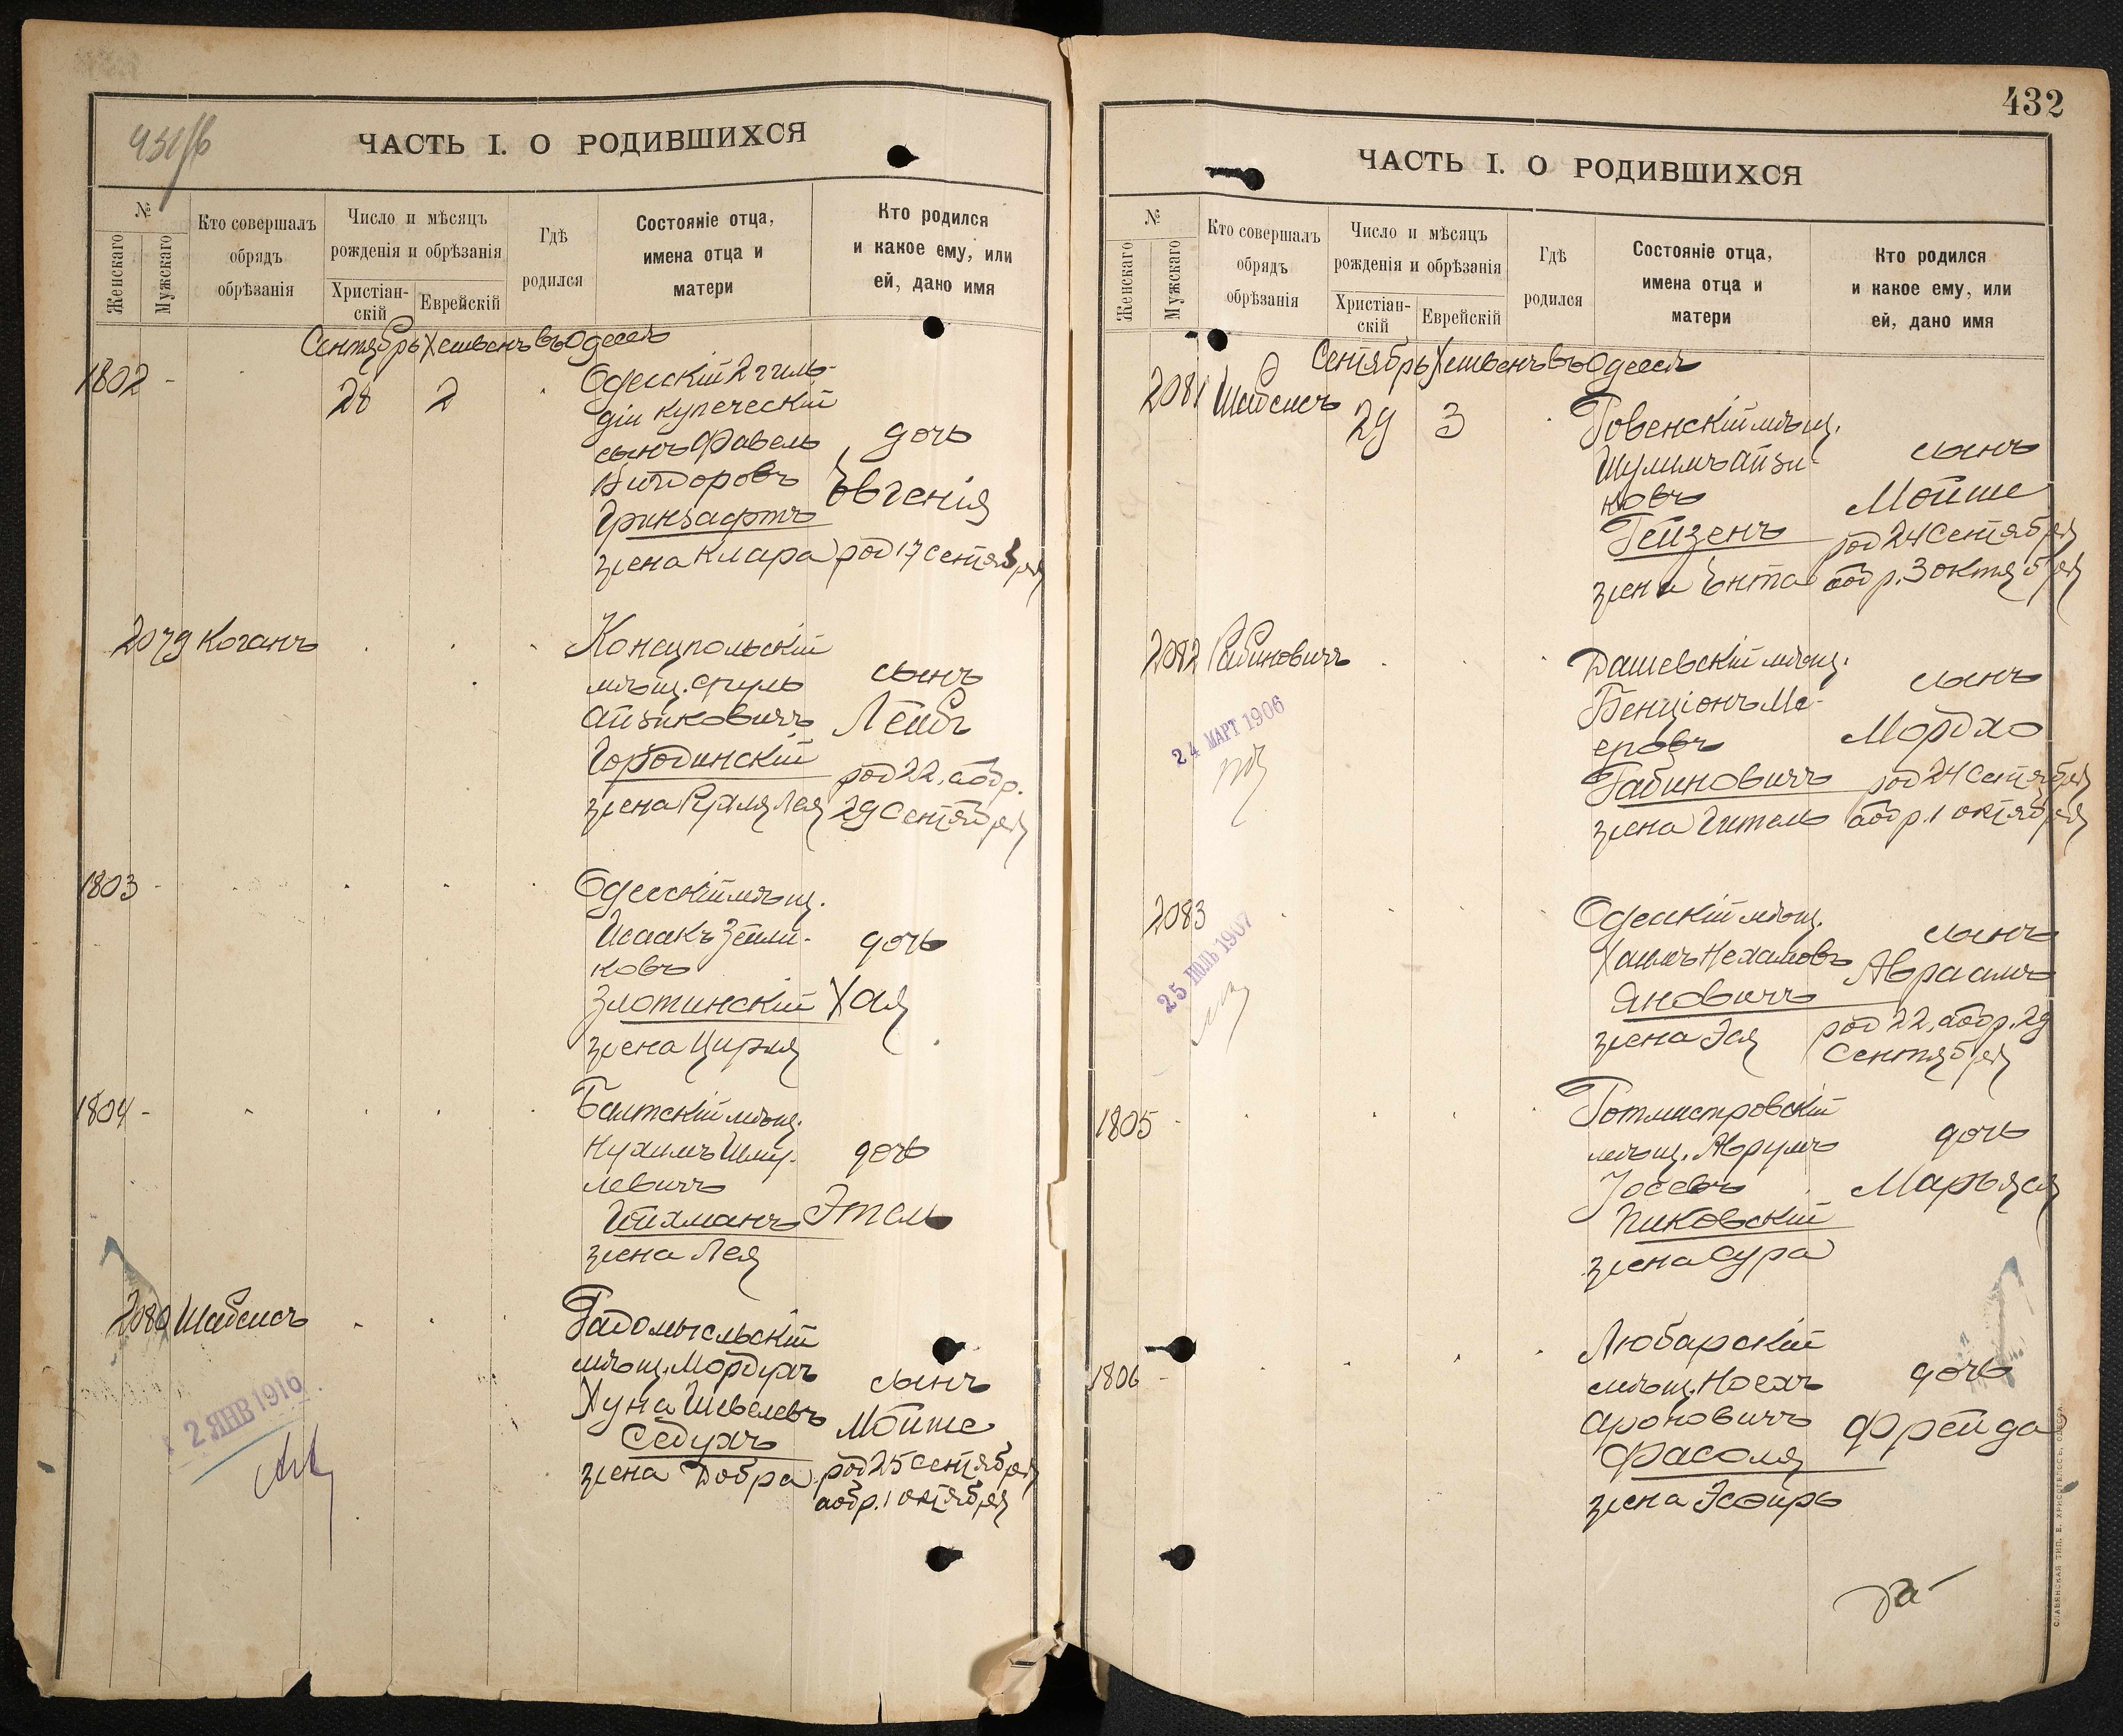 ЧАСТЬ I. О РОДИВШИХСЯ
№
Женскаго
Мужскаго
Кто совершалъ
обрядъ
обрѣзанія
Число и мѣсяцъ
рожденія и обрѣзанія
Христіан-
скій
Еврейскій
Гдѣ
родился
Состояніе отца,
имена отца и
матери
Кто родился
и какое ему, или
ей, дано имя
Сентябрь Хешвенъ въ Одессѣ
1802 -
28
2
Одесскій 2 гиль-
діи купеческій
сынъ Фавель
Викторовъ
Гринзафтъ
жена Клара
дочь
Евгенія
род 17 Сентября
2079 Коганъ
Концпольскій
мѣщ. Сруль
Айзиковичъ
Городинскій
жена Рухля Лея
сынъ
Лейбъ
род 22, а обр.
29 Сентября
1803 -
Одесскій мѣщ.
Исаакъ Зейли-
ковъ
Злотинскій
жена Цирля
дочь
Хая
1804 -
Балтскій мѣщ.
Нухимъ Шму-
левичъ
жена Лея
дочь
Этель
2080 Шабсисъ
2 ЯНВ 1916
Радомысльскій
мѣщ. Мордухъ
Хуна Шевелевъ
Седухъ
жена Добра
сынъ
Мойше
род 25 Сентября
а обр. 1 октября
432
ЧАСТЬ I. О РОДИВШИХСЯ
№
Женскаго
Мужскаго
Кто совершалъ
обрядъ
обрѣзанія
Число и мѣсяцъ
рожденія и обрѣзанія
Христіан-
скій
Еврейскій
Гдѣ
родился
Состояніе отца,
имена отца и
матери
Кто родился
и какое ему, или
ей, дано имя
Сентябрь Хешвенъ въ Одессѣ
2081 Шабсисъ
29
3
Ровенскій мѣщ.
Шулимъ Айзи-
ковъ
Рейзенъ
жена Ента
сынъ
Мойше
род 24 Сентября
а обр. 3 октября
2082 Рабиновичъ
24 МАРТ 1906
Дашевскій мѣщ.
Бенціонъ Ме-
еровъ
Рабиновичъ
жена Гитель
сынъ
Мордхо
род 24 Сентября
а обр. 1 октября
2083
25 ІЮЛЬ 1907
Одесскій мѣщ.
Хаимъ Нехамовъ
Яновичъ
жена Эся
сынъ
Авраамъ
род 22, а обр. 29
Сентября
1805 -
Ротмистровскій
мѣщ. Аврумъ
Іосевъ
Пиковскій
жена Сура
дочь
Марьяся
1806 -
Любарскій
мѣщ. Носехъ
Ароновичъ
Фасоля
жена Эсфирь
дочь
Фрейда
СЛАВЯНСКАЯ ТИП. Е. ХРИСОГЕЛОСЪ, ОДЕССА